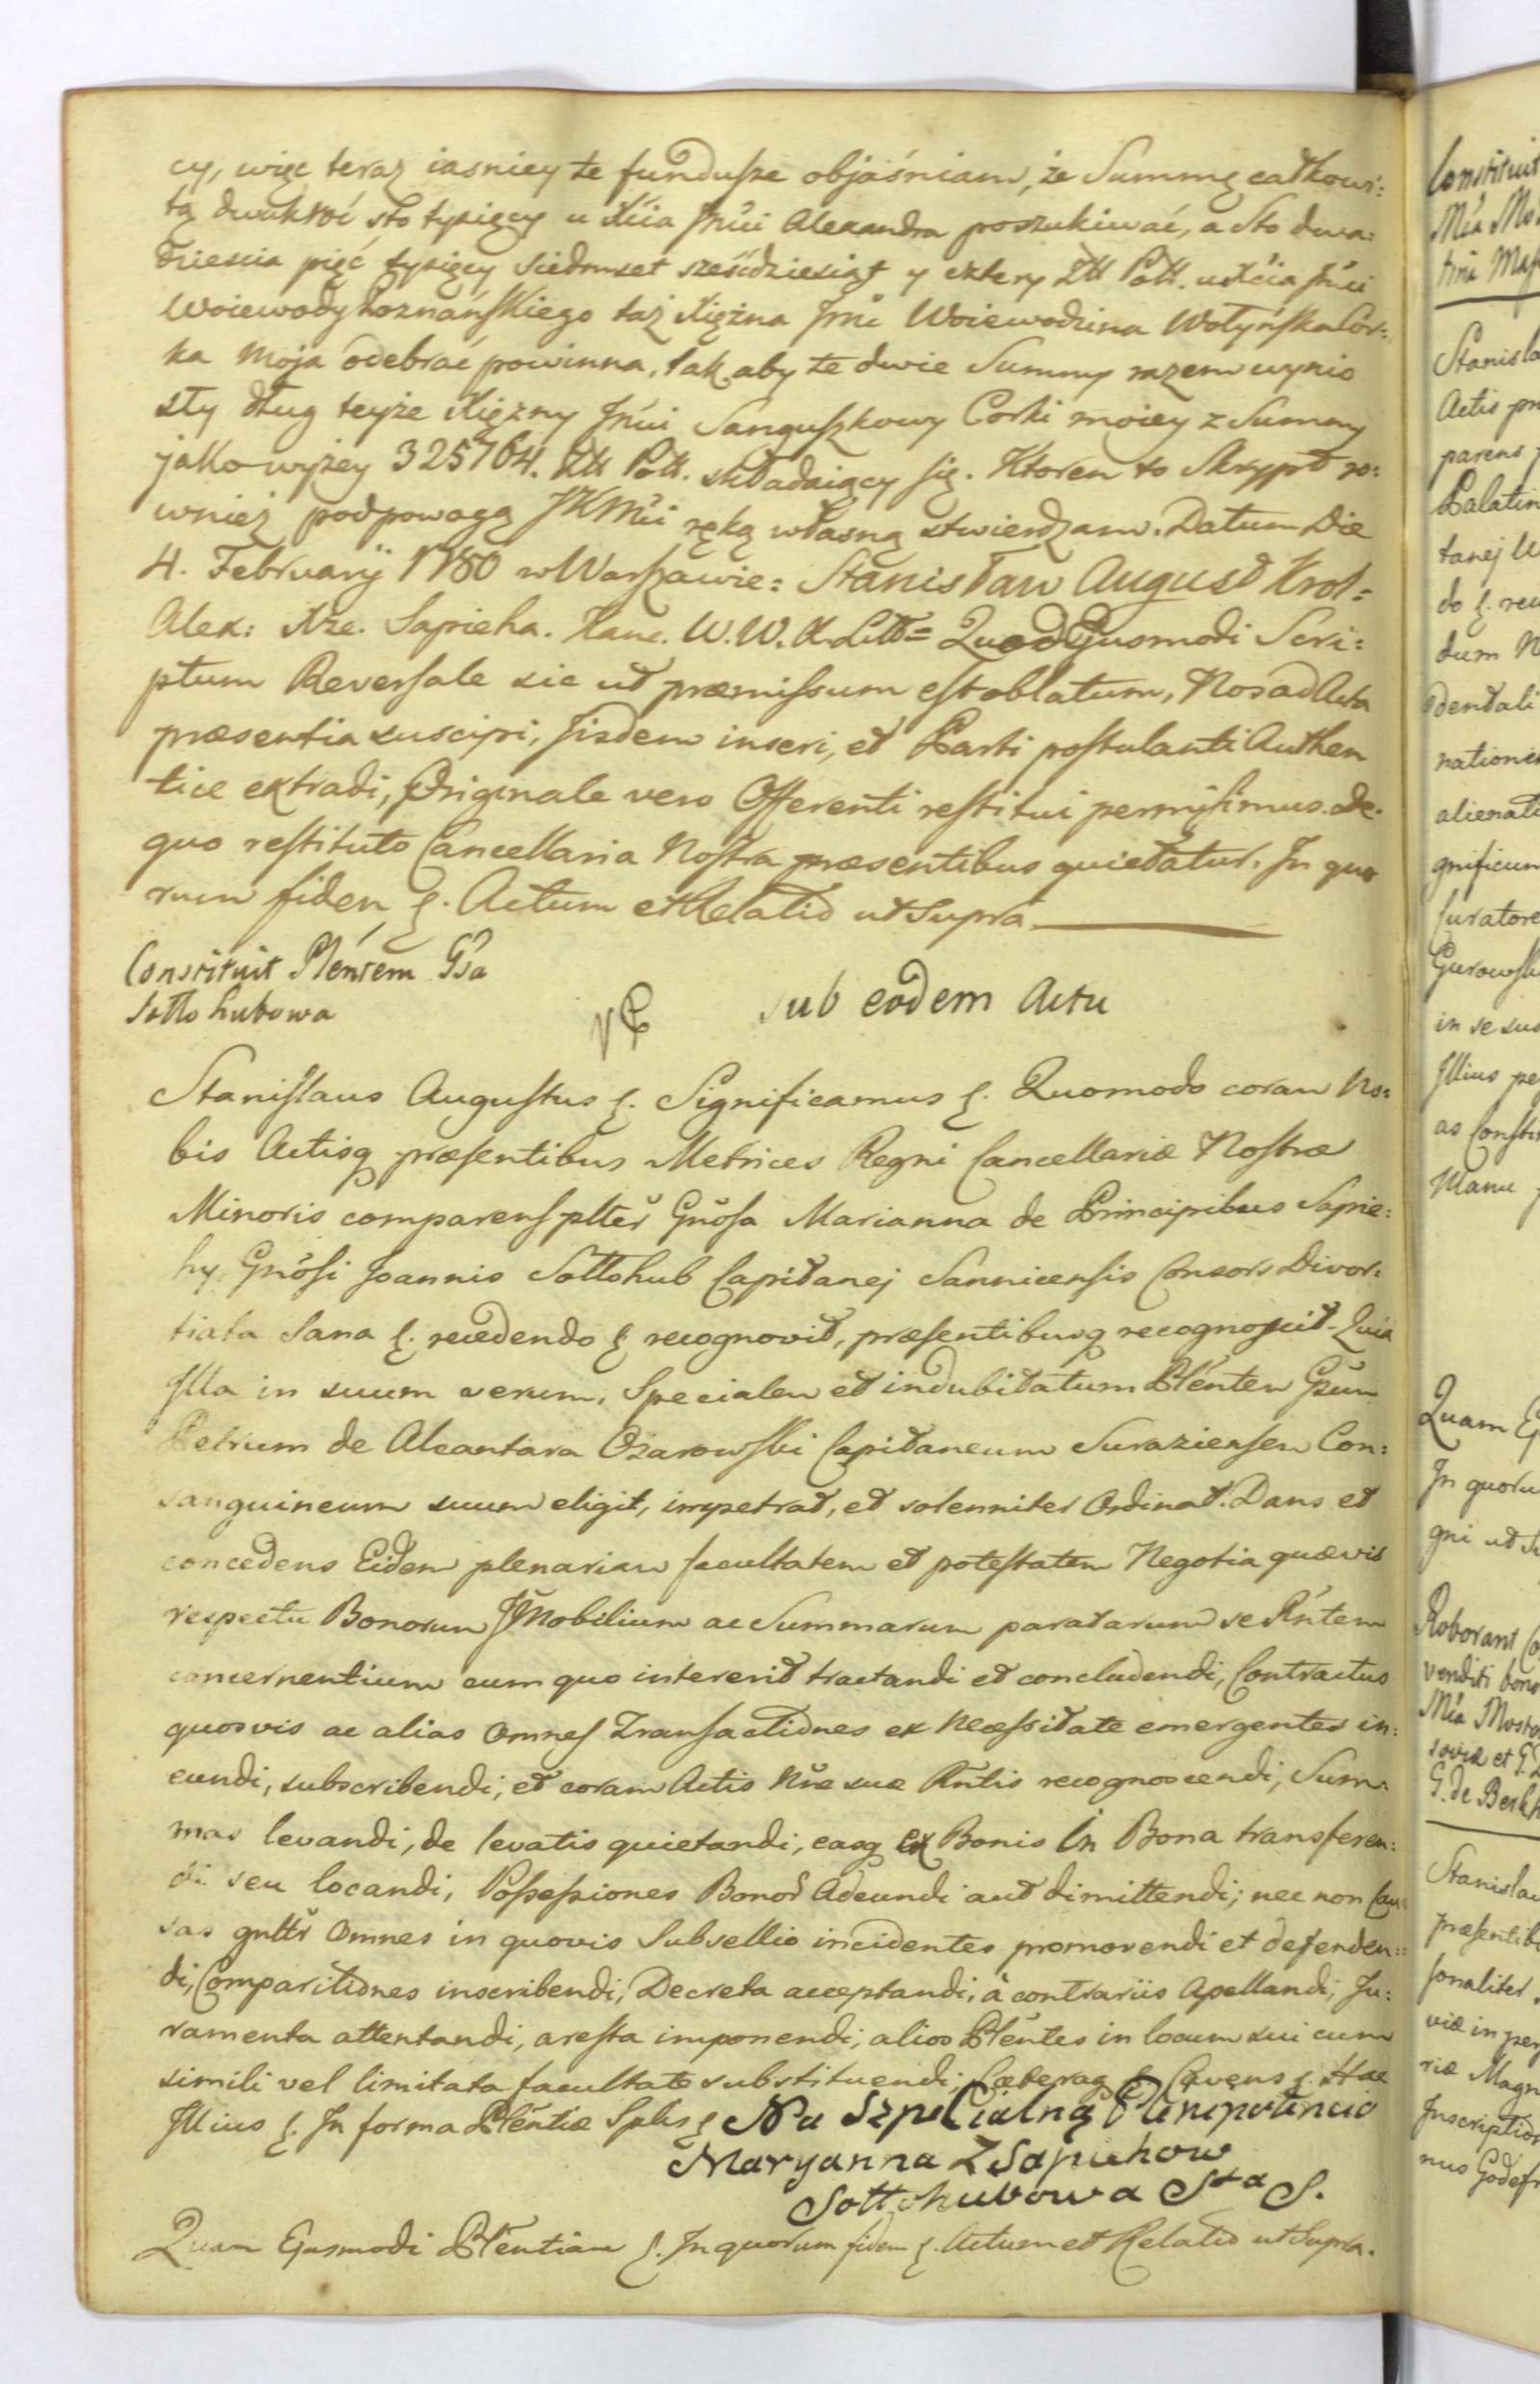 cy, więc teraz iasniey te fundusze objaśniam, że Summę całkowi:
tą dwakroć sto tysięcy u Xcia Jmci Alexandra poszukiwać, a Sto dwa:
dziescia pięć tysięcy siedmset sześcdziesiąt y cztery Złł Poll. u Xcia Jmci
Woiewody Poznańskiego taż Xiężna Jmć Woiewodzina Wołyńska Cór:
ka Moja odebrać powinna, tak aby te dwie Summy razem wynio
sły dług teyże Xiężny Jmci Sanguszkowy Corki moiey z Summy
jako wyżey 325764. Złł Poll. składaiący się. Ktoren to Skrypt ro:
wnież pod powagą JKMci ręką własną stwierdzam. Datum Die
4. Februarij 1780 w Warszawie: Stanisław August Krol=
Alex: Xże. Sapieha. Kanc. W. W. X. Litt= Quod Ejusmodi Scri:
ptum Reversale sic ut præmissum est oblatum, Nos ad Acta
præsentia suscipi, Iisdem inseri, et Parti postulanti Authen
tice extradi, Originale vero Offerenti restitui permisimus. De
quo restituto Cancellaria Nostra præsentibus quietatur. In quo
rum fidem &. Actum et Relatio ut Supra.
Constituit Plentem Gsa
Sołłohubowa
sub eodem Actu
Stanislaus Augustus &. Significamus &. Quomodo coram No:
bis Actisq præsentibus Metrices Regni Cancellariæ Nostræ
Minoris comparens plter Gnosa Marianna de Principibus Sapie:
hy, Gnosi Joannis Sołłohub Capitanej Sannicensis Consors Divor:
tiata Sana &. recedendo & recognovit, præsentibusq recognoscit. Quia
Illa in suum verum, Specialem et indubitatum Plentem Gsum
Petrum de Alcantara Ożarowski Capitaneum Suraziensem Con:
sanguineum suum eligit, impetrat, et solenniter Ordinat. Dans et
concedens Eidem plenariam facultatem et potestatem Negotia quævis
respectu Bonorum Immobilium ac Summarum paratarum se Rntem
concernentium cum quo intererit tractandi et concludendi, Contractus
quosvis ac alias Omnes Transactiones ex Necessitate emergentes in:
eundi, subscribendi, et coram Actis Nne suæ Rntis recognoscendi, Sum
mas levandi, de levatis quietandi, easq ex Bonis in Bona transferen:
di seu locandi, Possessiones Bonor Adeundi aut dimittendi; nec non Cau
sas gnltr Omnes in quovis Subsellio incidentes promovendi et defenden:
di, Comparitiones inscribendi, Decreta acceptandi, à contrariis Apellandi, Ju:
ramenta attentandi, aresta imponendi; alios Plentes in locum sui cum
simili vel limitata facultate substituendi; Cæteraq & Cavens &. Hac
Illius &. In forma Plentiæ Splis & Na Szpecialną Plenipotencio
Maryanna Z Sapiehow
Sołłohubowa Sta S.
Quam Ejusmodi Plentiam &. In quorum fidem &. Actum et Relatio ut Supra.
Constituit
Stanisla
Actis
parens
Palatin
tanej
dum
nationes
alienati
gnificum
in se
Illius
as
Manu
Quam
In quoru
gni ut
Roborant
venditi bono
Stanislau
præsentib
sonaliter
riæ Magn
Inscription